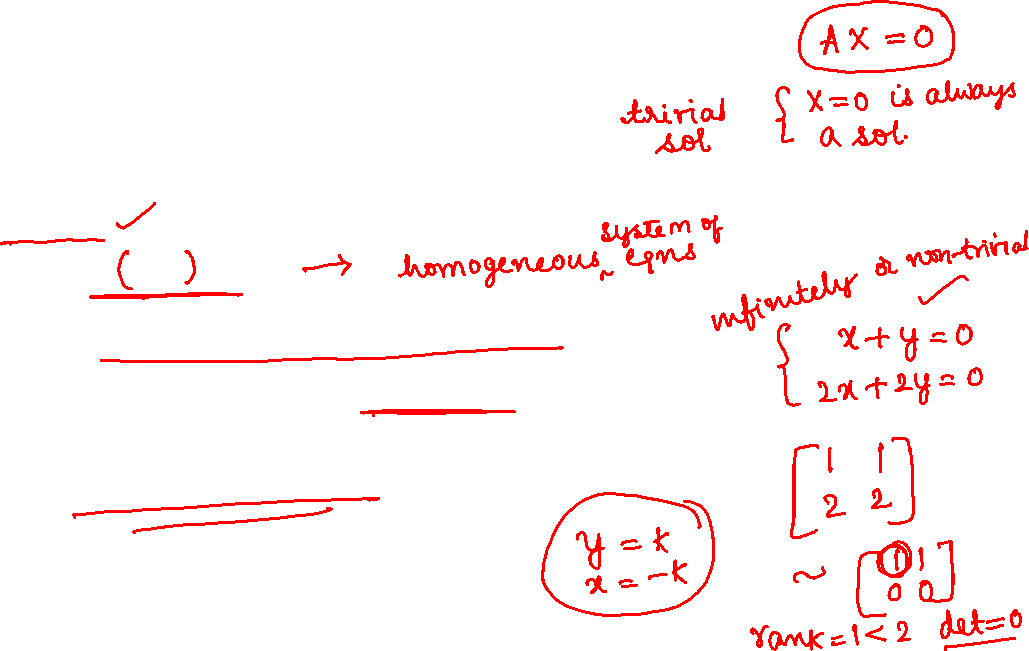 AX = 0
trivial sol { X=0 is always
a sol.
( ) → homogeneous system of eqns
infinitely or non-trivial
x + y = 0
2x + 2y = 0
[1 1
2 2]
y = k
x = -k
~ [1 1
0 0]
rank = 1 < 2 det = 0